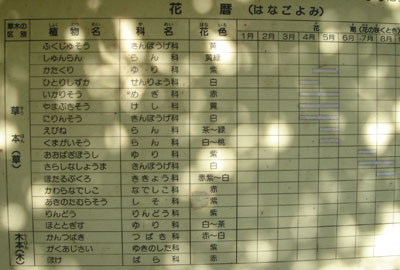 花暦 (はなごよみ)
草木の区別 植物名 科名 花色 花期 (花の咲くとき)
しょく ぶつ めい か めい はな いろ
1月 2月 3月 4月 5月 6月 7月 8月
草本(草)
ふくじゅそう きんぽうげ科 黄
しゅんらん らん科 黄緑
かたくり ゆり科 紫
ひとりしずか せんりょう科 白
いかりそう めぎ科 赤
やまぶきそう けし科 黄
にりんそう きんぽうげ科 白
えびね らん科 茶〜緑
くまがいそう らん科 白〜桃
おおばぎぼうし ゆり科 紫
さらしなしょうま きんぽうげ科 白
ほたるぶくろ ききょう科 赤紫〜白
かわらなでしこ なでしこ科 赤
あきのたむらそう しそ科 紫
りんどう りんどう科 紫
ほととぎす ゆり科 白〜茶
木本(木)
かんつばき つばき科 赤〜白
がくあじさい ゆきのした科 紫
ぼけ ばら科 赤